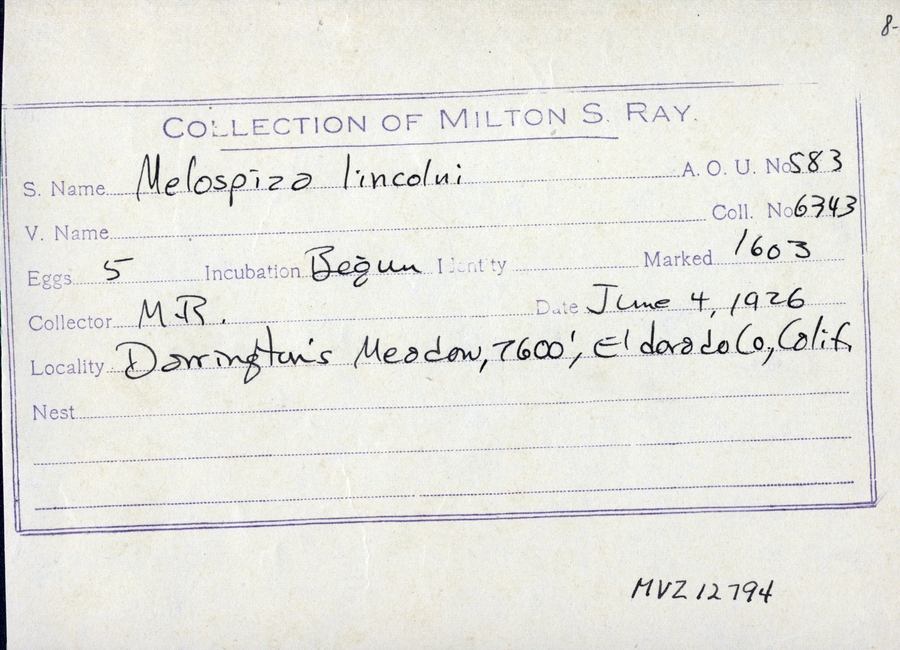 8-
COLLECTION OF MILTON S. RAY.
S. Name Melospiza lincolni A. O. U. No 583
V. Name Coll. No 6343
Eggs 5 Incubation Begun Identity Marked 1603
Collector M.R. Date June 4, 1926
Locality Darrington's Meadow, 7600', El dorado Co, Calif.
Nest
MVZ 12794